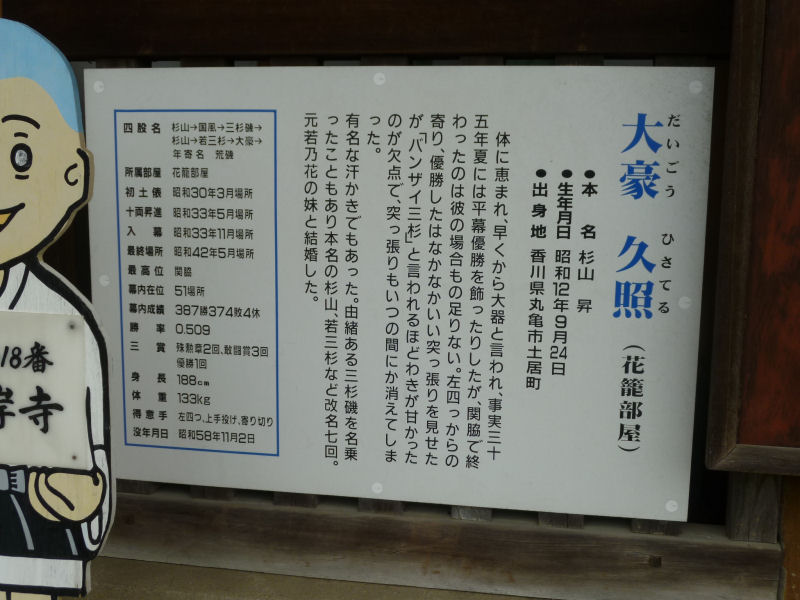 大豪 久照
だいごう ひさてる
（花籠部屋）
●本 名 杉山 昇
●生年月日 昭和12年9月24日
●出身地 香川県丸亀市土居町
体に恵まれ、早くから大器と言われ、事実三十
五年夏には平幕優勝を飾ったりしたが、関脇で終
わったのは彼の場合もの足りない。左四っからの
寄り、優勝したはなかなかいい突っ張りを見せた
が、「バンザイ三杉」と言われるほどわきが甘かった
のが欠点で、突っ張りもいつの間にか消えてしま
った。
有名な汗かきでもあった。由緒ある三杉磯を名乗
ったこともあり本名の杉山、若三杉など改名七回。
元若乃花の妹と結婚した。
四股名 杉山→国風→三杉磯→
杉山→若三杉→大豪→
年寄名 荒磯
所属部屋 花籠部屋
初土俵 昭和30年3月場所
十両昇進 昭和33年5月場所
入幕 昭和33年11月場所
最終場所 昭和42年5月場所
最高位 関脇
幕内在位 51場所
幕内成績 387勝374敗4休
勝率 0.509
三賞 殊勲章2回、敢闘賞3回
優勝1回
身長 188cm
体重 133kg
得意手 左四つ、上手投げ、寄り切り
没年月日 昭和58年11月2日
18番
岸寺